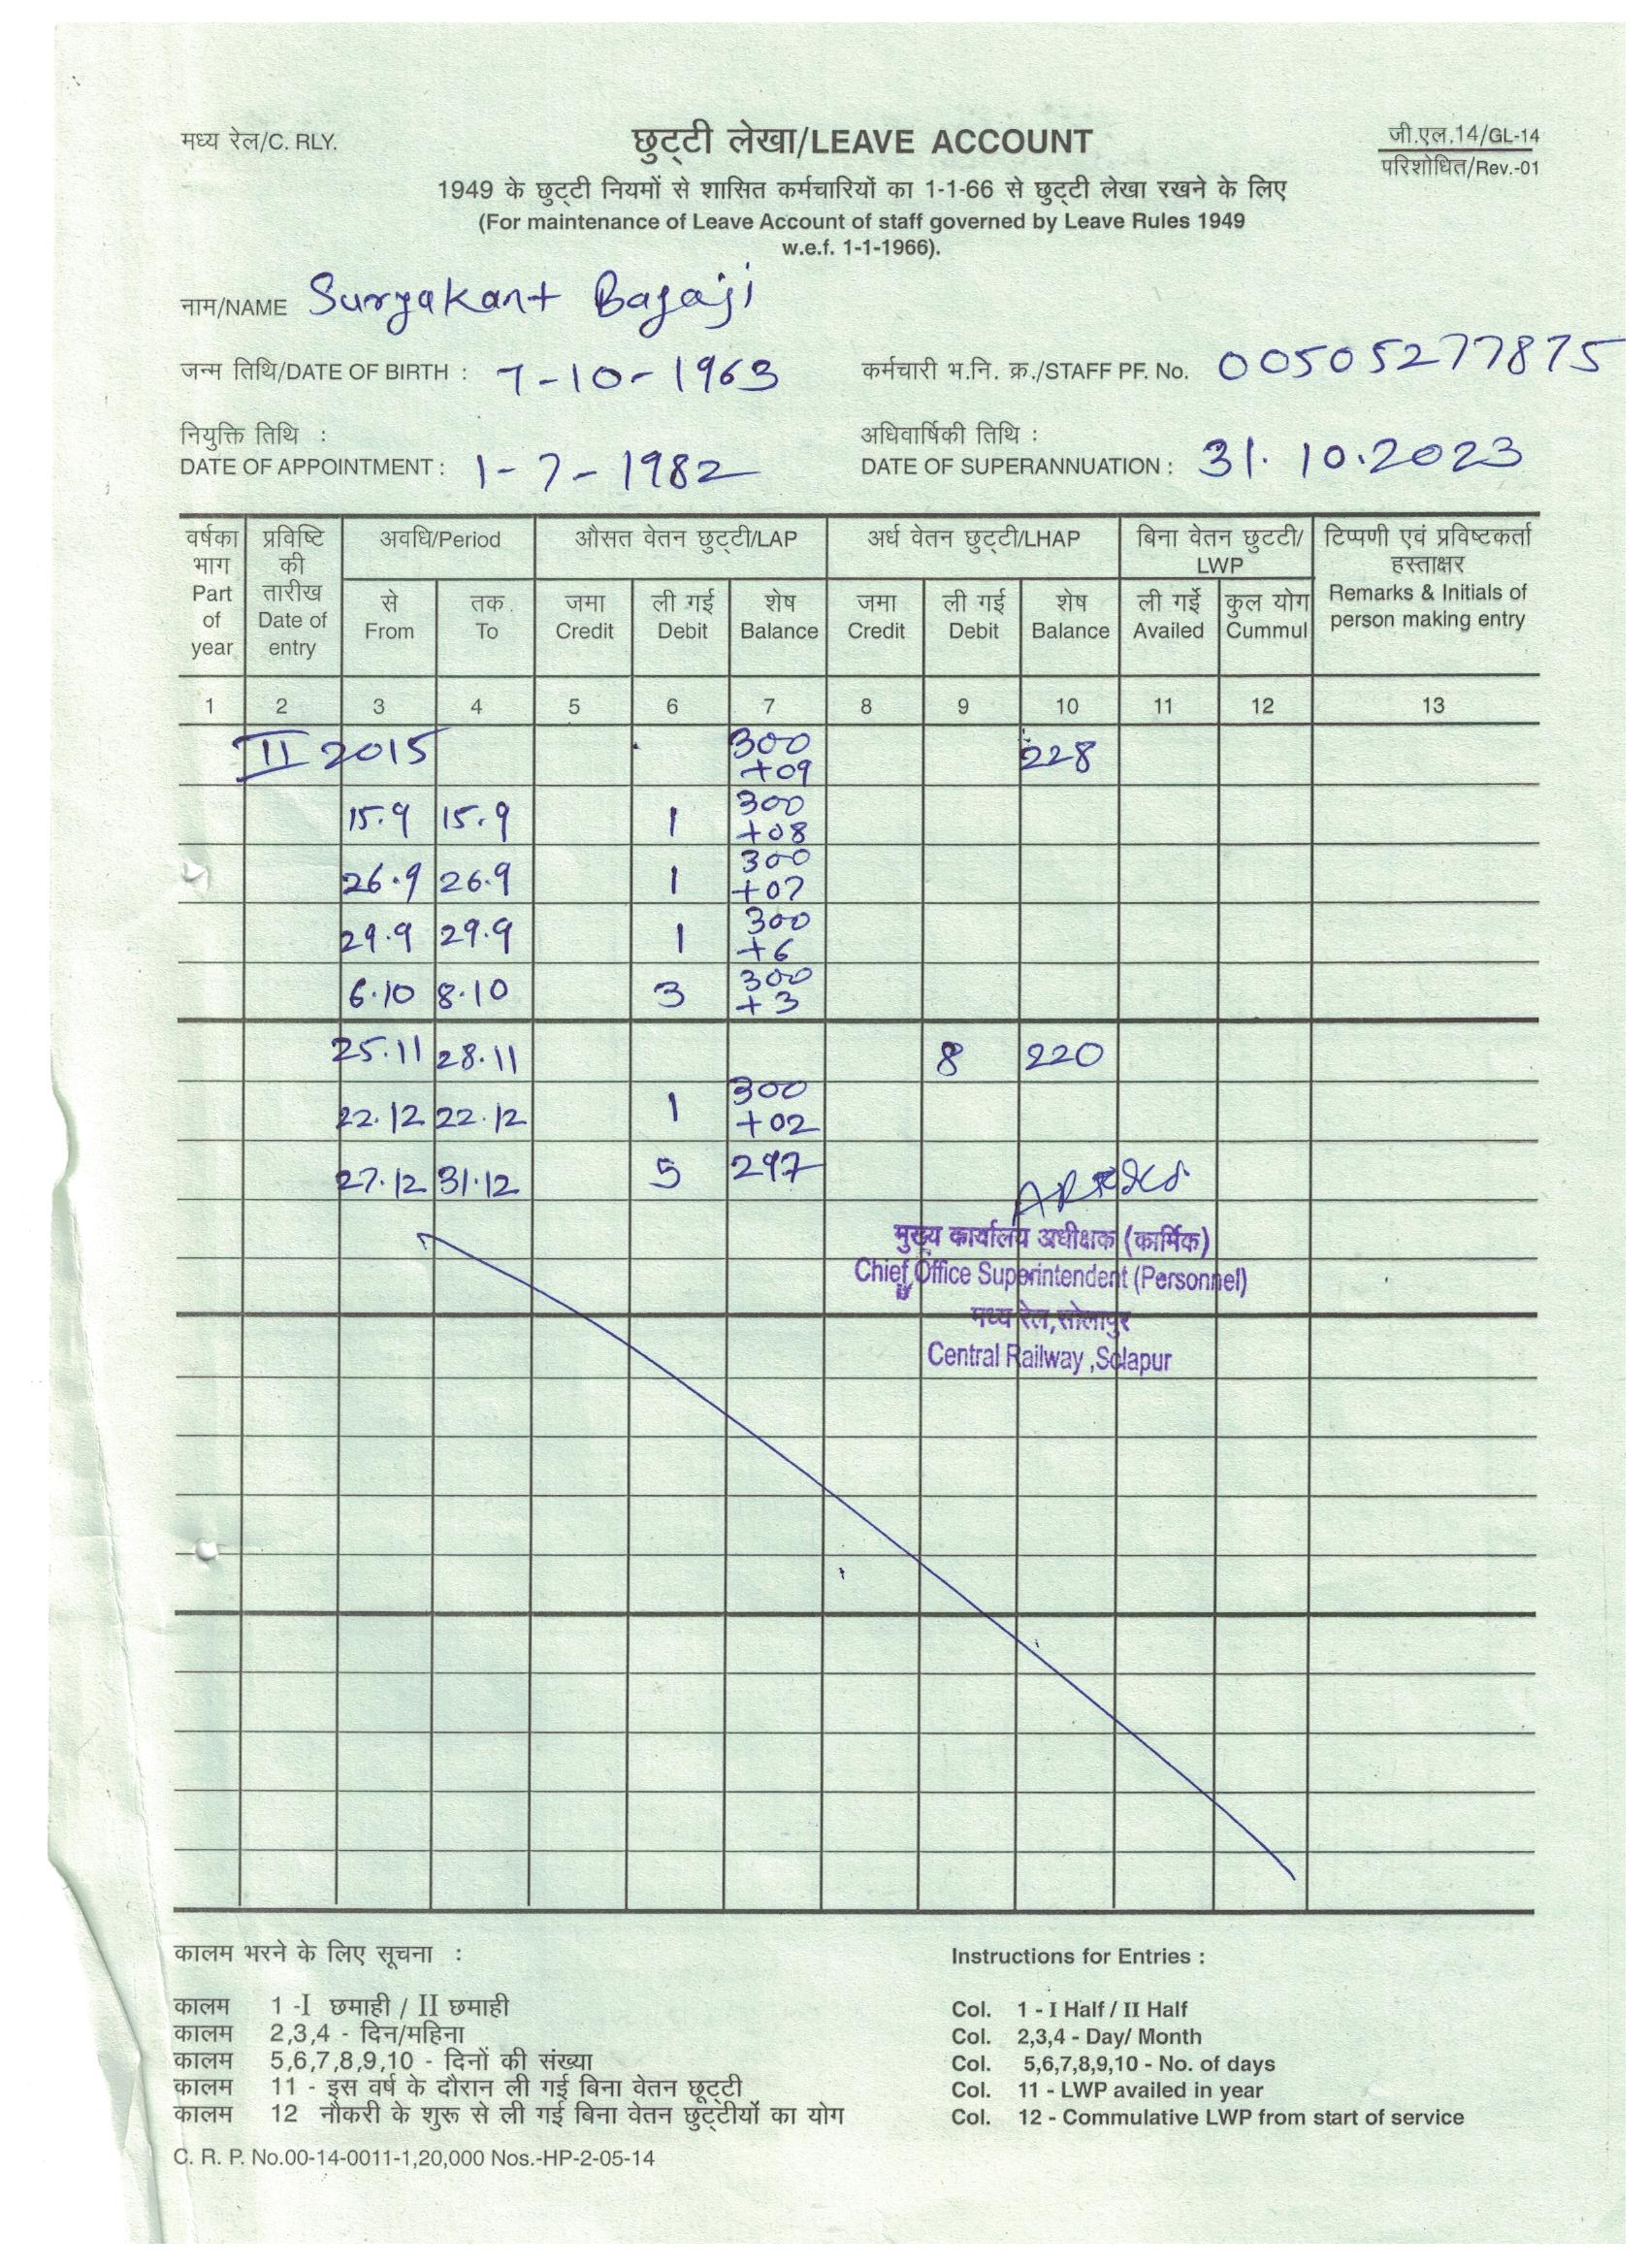 मध्य रेल/C. RLY.
छुट्टी लेखा/LEAVE ACCOUNT
जी.एल.14/GL-14
परिशोधित/Rev.-01
1949 के छुट्टी नियमों से शासित कर्मचारियों का 1-1-66 से छुट्टी लेखा रखने के लिए
(For maintenance of Leave Account of staff governed by Leave Rules 1949
w.e.f. 1-1-1966).
नाम/NAME Suryakant Bajaji
जन्म तिथि/DATE OF BIRTH : 7-10-1963 कर्मचारी भ.नि. क्र./STAFF PF. No. 00505277875
नियुक्ति तिथि : अधिवार्षिकी तिथि :
DATE OF APPOINTMENT : 1-7-1982 DATE OF SUPERANNUATION : 31.10.2023
वर्षका भाग Part of year
प्रविष्टि की तारीख Date of entry
अवधि/Period
औसत वेतन छुट्टी/LAP
अर्ध वेतन छुट्टी/LHAP
बिना वेतन छुटटी/ LWP
टिप्पणी एवं प्रविष्टकर्ता हस्ताक्षर Remarks & Initials of person making entry
से From
तक. To
जमा Credit
ली गई Debit
शेष Balance
जमा Credit
ली गई Debit
शेष Balance
ली गईे Availed
कुल योग Cummul
1 2 3 4 5 6 7 8 9 10 11 12 13
II 2015 300 +09 228
15.9 15.9 1 300 +08
26.9 26.9 1 300 +07
29.9 29.9 1 300 +6
6.10 8.10 3 300 +3
25.11 28.11 8 220
22.12 22.12 1 300 +02
27.12 31.12 5 297
मुख्य कार्यालय अधीक्षक (कार्मिक)
Chief Office Superintendent (Personnel)
मध्य रेल, सोलापुर
Central Railway ,Solapur
कालम भरने के लिए सूचना :
कालम 1 -I छमाही / II छमाही
कालम 2,3,4 - दिन/महिना
कालम 5,6,7,8,9,10 - दिनों की संख्या
कालम 11 - इस वर्ष के दौरान ली गई बिना वेतन छूट्टी
कालम 12 नौकरी के शुरू से ली गई बिना वेतन छुट्टीयों का योग
Instructions for Entries :
Col. 1 - I Half / II Half
Col. 2,3,4 - Day/ Month
Col. 5,6,7,8,9,10 - No. of days
Col. 11 - LWP availed in year
Col. 12 - Commulative LWP from start of service
C. R. P. No.00-14-0011-1,20,000 Nos.-HP-2-05-14